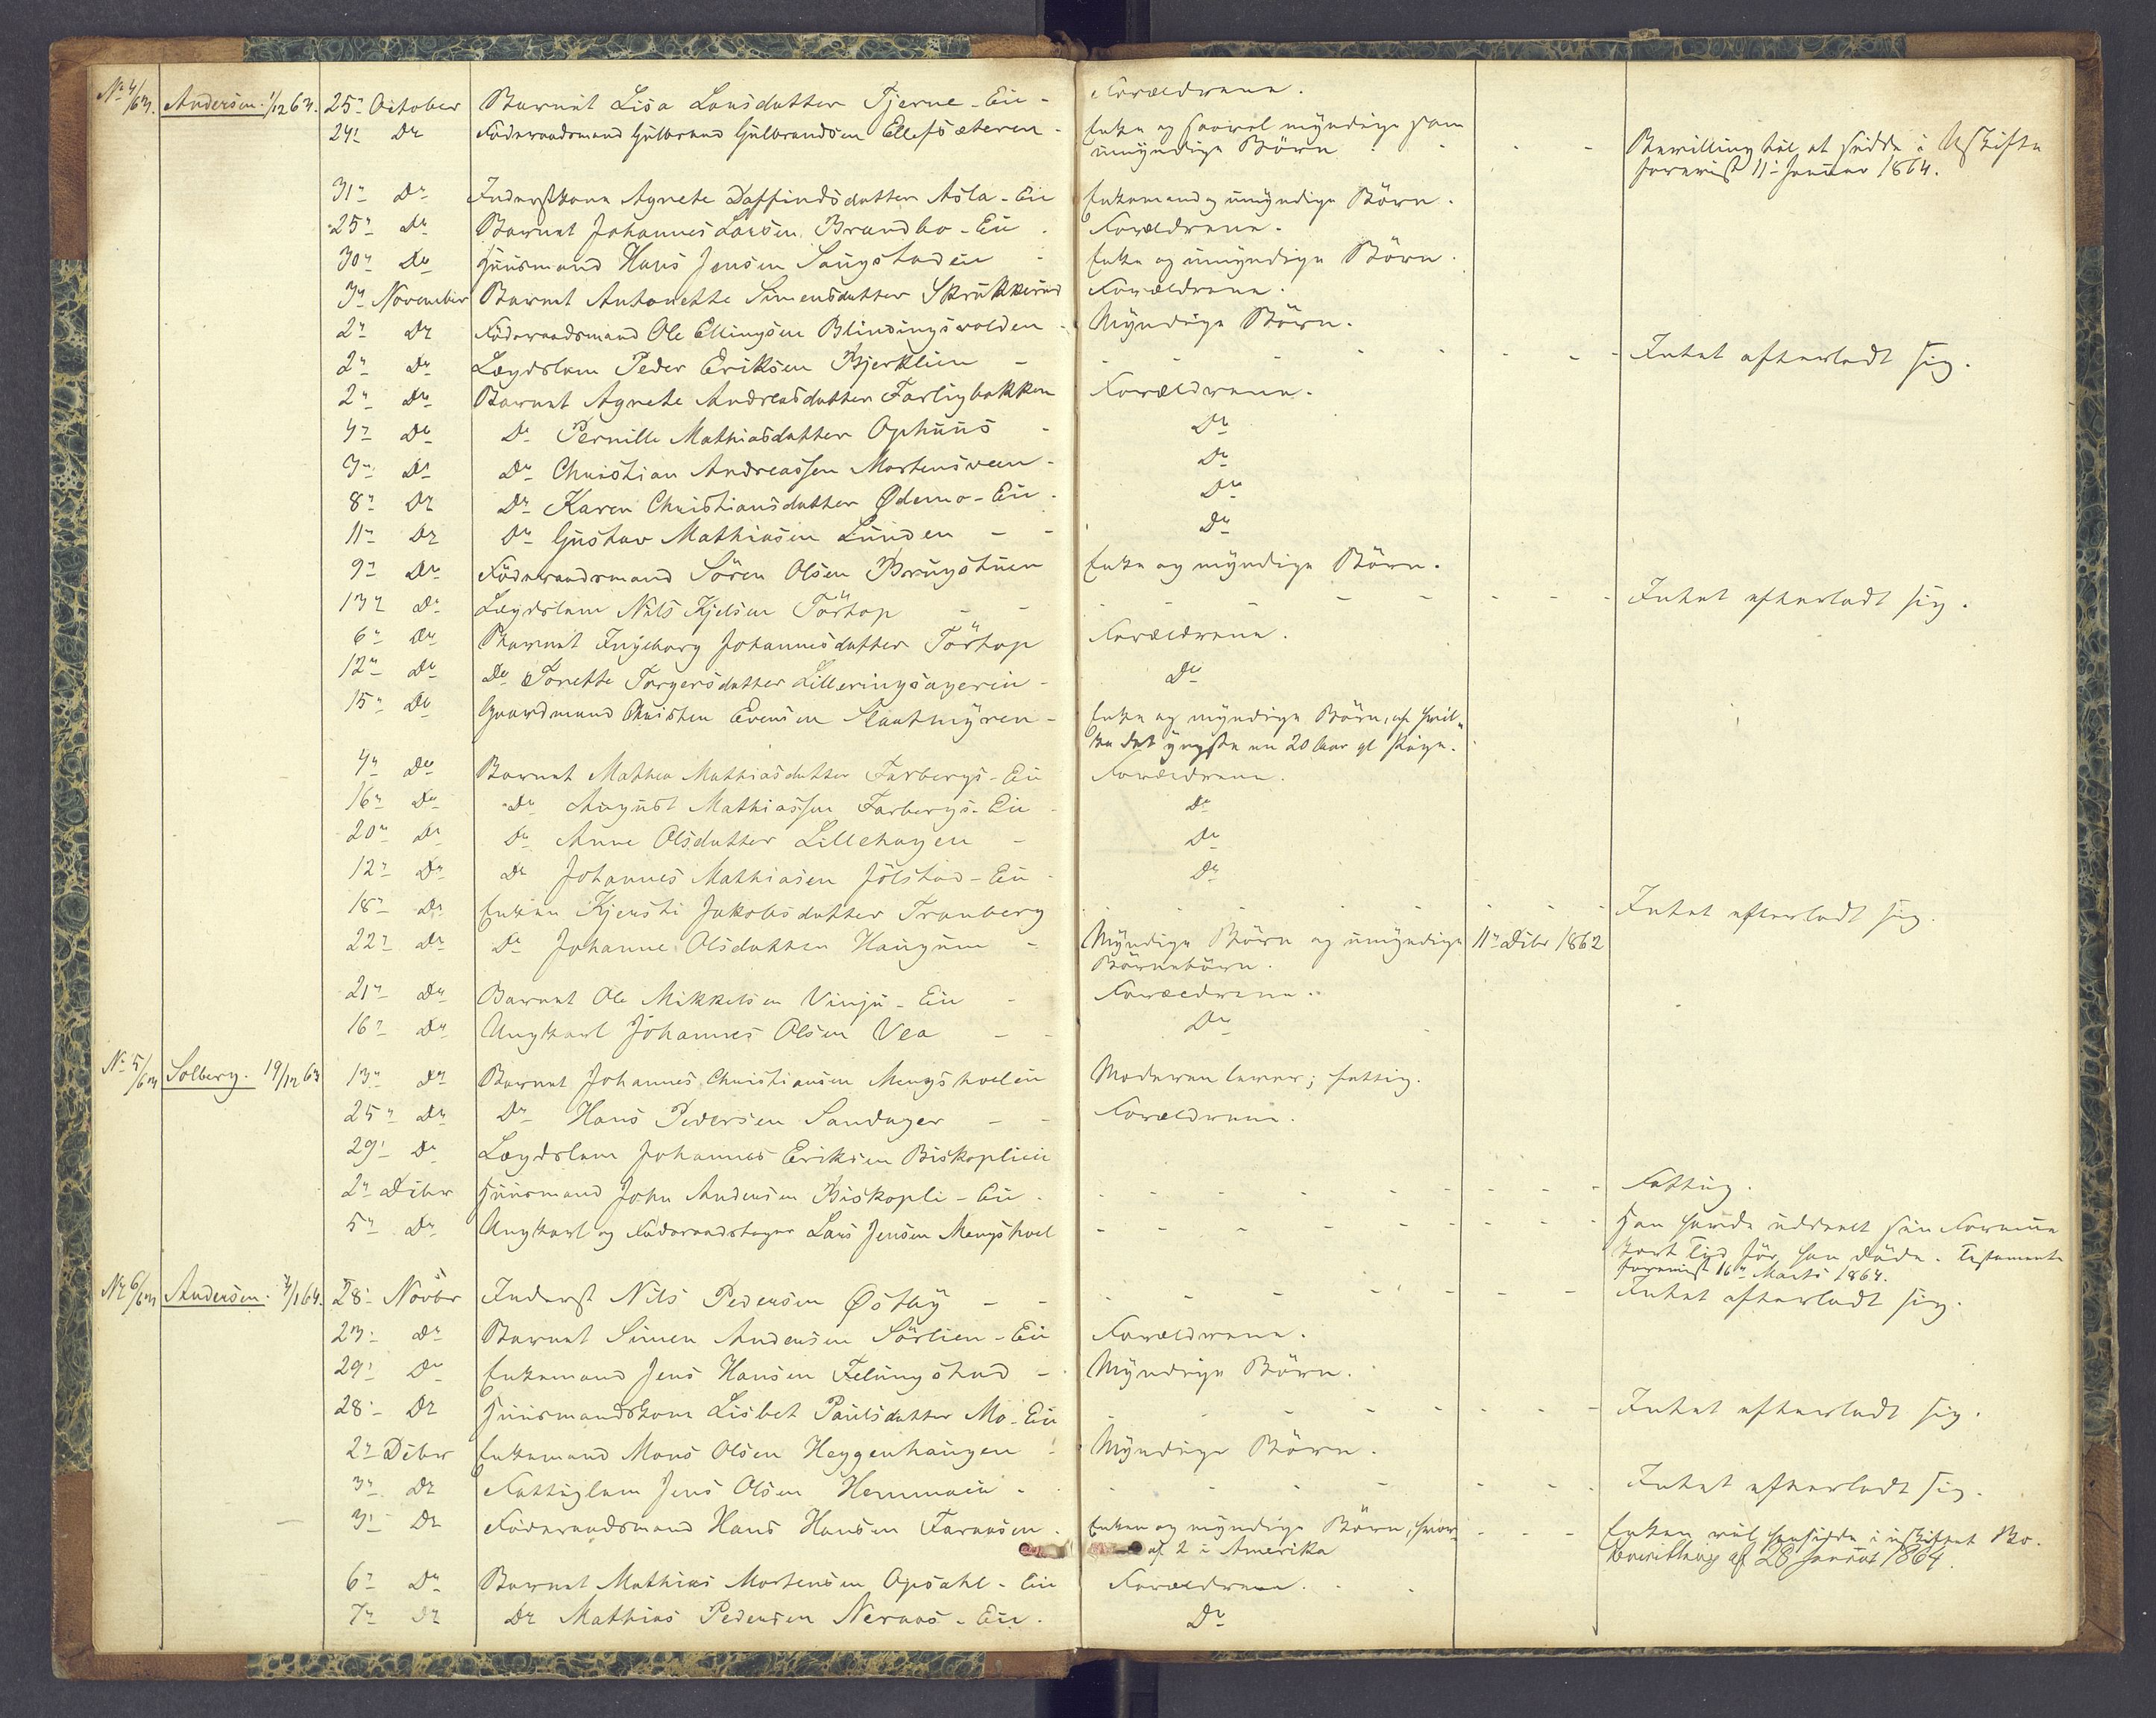 No 4/63. Andersen. 1/12 63. 25de October Barnet Lisa Larsdatter Tjerne-Eie - Forældrene.
24. Do Føderaadsmand Gulbrand Gulbrandsen Ellefsæteren - Enke og saavel myndige som
umyndige Børn - - - Bevilling til at sidde i Uskifte
forevist 11. Januar 1864.
31. Do Inderstkone Agnete Daffindsdatter Asla-Eie Enkemand og umyndige Børn.
25. Do Barnet Johannes Larsen Brandbo-Eie Forældrene.
30. Do Huusmand Hans Jensen Saugstadeie - Enke og umyndige Børn.
3. November Barnet Antonette Simensdatter Skrukkerud Forældrene.
2. Do Føderaadsmand Ole Ellingsen Blindingsvolden - Myndige Børn.
2. Do Lægdslem Peder Eriksen Bjerklien - - - - Intet efterladt sig.
2. Do Barnet Agnete Andreasdatter Farligbakken Forældrene.
4. Do Do Pernille Mathiasdatter Ophuus - Do
3. Do Do Christian Andreassen Mortensveen - Do
8. Do Do Karen Christiansdatter Ødemo-Eie - Do
11. Do Do Gustav Mathiasen Lunden - - Do
9. Do Føderaadsmand Sören Olsen Brugstuen Enke og myndige Børn.
13. Do Lægdslem Nils Kjelsen Törtop - - - - Intet efterladt sig.
6. Do Barnet Ingeborg Johannesdatter Törtop Forældrene.
12. Do Do Tonette Torgersdatter Lilleringsagerin - Do
15. Do Gaardmand Christen Evensen Slaatmyren - Enke og myndige Børn, af hvil-
ke det yngste en 20 Aar gl Pige.
4. Do Barnet Mathea Mathiasdatter Farbergs-Eie Forældrene.
16. Do Do August Mathiassen Farbergs-Eie - Do
20. Do Do Anne Olsdatter Lillehagen - Do
12. Do Do Johannes Mathiasen Jölstad-Eie - Do
18. Do Enken Kjersti Jakobsdatter Tranberg - - - Intet efterladt sig.
22. Do Do Johanne Olsdatter Haugum - Myndige Børn og umyndige 11. Dcbr 1862
Børnebørn.
21. Do Barnet Ole Mikkelsen Vinju-Eie - Forældrene.
16. Do Ungkarl Johannes Olsen Vea - - Do
No 5/63 Solberg. 19/12 63 13. Do Barnet Johannes Christiansen Mengshoeleie Moderen lever; fattig.
25. Do Do Hans Pedersen Sandager - - Forældrene.
29. Do Lægdslem Johannes Eriksen Biskoplien
2. Decbr Huusmand John Andersen Biskopli-Eie - - - - Fattig.
5. Do Ungkarl og Føderaadstager Lars Jensen Mengshoel - - - - Han havde uddeelt sin Formue
kort Tid før han døde. Testamente
forevist 16. Marts 1864.
No 6/63 Andersen. 4/1 64. 28. Novbr Inderst Nils Pedersen Østby - - - - Intet efterladt sig.
23. Do Barnet Simen Andersen Sörlien-Eie Forældrene.
29. Do Enkemand Jens Hansen Felungstad - Myndige Børn.
28. Do Huusmandskone Lisbet Paulsdatter Mo-Eie - - - Intet efterladt sig.
2. Decbr Enkemand Mons Olsen Heggenhaugen - Myndige Børn.
3. Do Fattiglem Jens Olsen Hemmaeie - - - - Intet efterladt sig.
3. Do Føderaadsmand Hans Hansen Faraasen - Enken og myndige Børn, hvor- - - - Enken vil hensidde i uskiftet Bo.
af 2 i Amerika Bevilling af 28 Januar 1864.
6. Do Barnet Mathias Mortensen Opsahl-Eie Forældrene.
7. Do Do Mathias Pedersen Neraas-Eie - Do